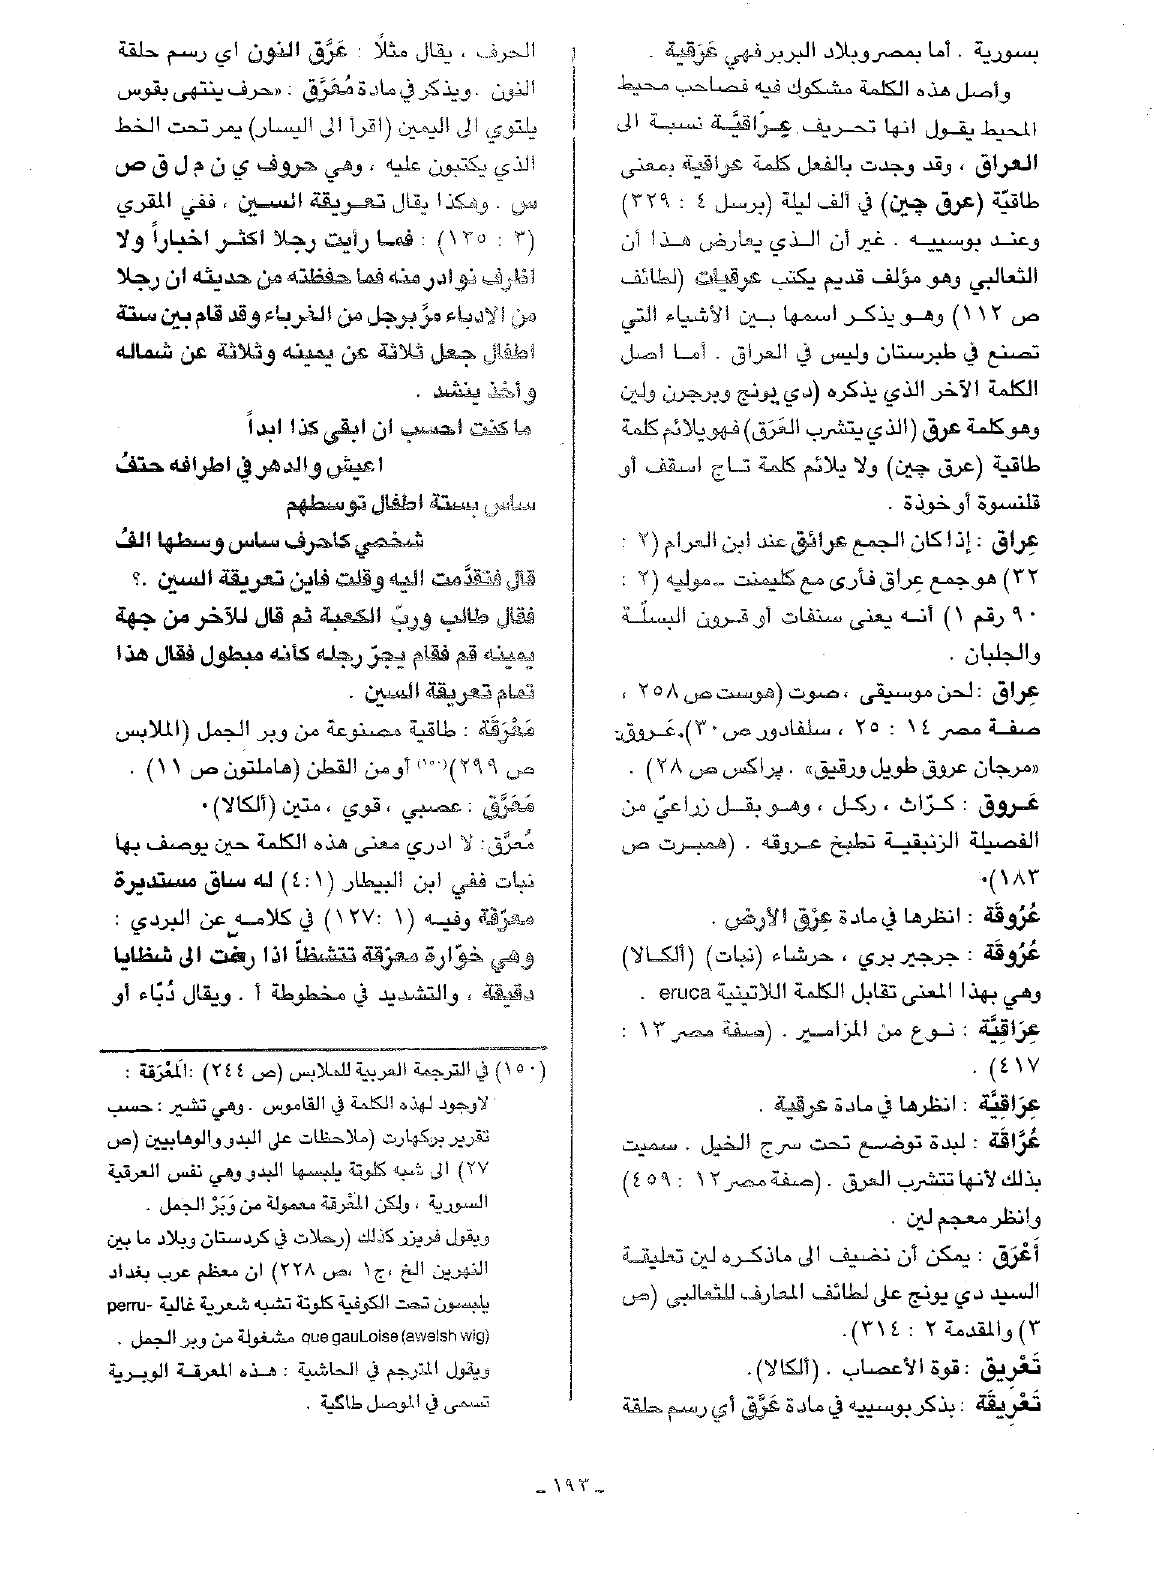 بسورية . أما بمصر وبلاد البربر فهي عَرَقية .
وأصل هذه الكلمة مشكوك فيه فصاحب محيط
المحيط يقول انها تحريف عِرَاقيَّة نسبة الى
العراق ، وقد وجدت بالفعل كلمة عراقية بمعنى
طاقيّة (عرق چين) في ألف ليلة (برسل ٤ : ٣٢٩)
وعند بوسييه . غير أن الذي يعارض هذا أن
الثعالبي وهو مؤلف قديم يكتب عرقيات (لطائف
ص ١١٢) وهو يذكر اسمها بين الأشياء التي
تصنع في طبرستان وليس في العراق . أما اصل
الكلمة الآخر الذي يذكره (دي يونج وبرجرن ولين
وهو كلمة عرق (الذي يتشرب العَرَق) فهو يلائم كلمة
طاقية (عرق چين) ولا يلائم كلمة تاج اسقف أو
قلنسوة أو خوذة .
عِراق : إذا كان الجمع عرائق عند ابن العرام (٢ :
٣٢) هو جمع عِراق فأرى مع كليمنت ــ موليه (٢ :
٩٠ رقم ١) أنه يعنى سنفات أو قرون البسلّة
والجلبان .
عِراق : لحن موسيقى ، صوت (هوست ص ٢٥٨ ،
صفة مصر ١٤ : ٢٥ ، سلفادور ص ٣٠). عَروق:
«مرجان عروق طويل ورقيق» . پراكس ص ٢٨) .
عَروق : كرّاث ، ركل ، وهو بقل زراعيّ من
الفصيلة الزنبقية تطبخ عروقه . (همبرت ص
١٨٣).
عُرُوقَة : انظرها في مادة عِرْق الأرض .
عُرُوقَة : جرجير بري ، حرشاء (نبات) (ألكالا)
وهي بهذا المعنى تقابل الكلمة اللاتينية eruca .
عِرَاقيَّة : نوع من المزامير . (صفة مصر ١٣ :
٤١٧) .
عِرَاقيَّة : انظرها في مادة عرقية .
عُرَّاقَة : لبدة توضع تحت سرج الخيل . سميت
بذلك لأنها تتشرب العرق . (صفة مصر ١٢ : ٤٥٩)
وانظر معجم لين .
أَعْرَق : يمكن أن نضيف الى ماذكره لين تعليقة
السيد دي يونج على لطائف المعارف للثعالبي (ص
٣) والمقدمة ٢ : ٣١٤).
تَعْرِيق : قوة الأعصاب . (ألكالا).
تَعْرِيقَة : يذكر بوسييه في مادة عَرَّق أي رسم حلقة
الحرف ، يقال مثلًا : عَرَّق النون اي رسم حلقة
النون . ويذكر في مادة مُعَرَّق : «حرف ينتهى بقوس
يلتوي الى اليمين (اقرأ الى اليسار) يمر تحت الخط
الذي يكتبون عليه ، وهي حروف ي ن م ل ق ص
س . وهكذا يقال تعريقة السين ، ففي المقري
(٣ : ١٣٥) : فما رأيت رجلا اكثر اخباراً ولا
اظرف نوادر منه فما حفظته من حديثه ان رجلا
من الادباء مرَّ برجل من الغرباء وقد قام بين ستة
اطفال جعل ثلاثة عن يمينه وثلاثة عن شماله
وأخذ ينشد .
ما كنت احسب ان ابقى كذا ابداً
اعيش والدهر في اطرافه حتفُ
ساس بستة اطفال توسطهم
شخصي كاحرف ساس وسطها الفُ
قال فتقدَّمت اليه وقلت فاين تعريقة السين .؟
فقال طالب وربّ الكعبة ثم قال للآخر من جهة
يمينه قم فقام يجرّ رجله كأنه مبطول فقال هذا
تمام تعريقة السين .
مَعْرَقَة : طاقية مصنوعة من وبر الجمل (الملابس
ص ٢٩٩)(١٥٠) أو من القطن (هاملتون ص ١١) .
مَعَرَّق : عصبي ، قوي ، متين (ألكالا).
مُعرَّق: لا ادري معنى هذه الكلمة حين يوصف بها
نبات ففي ابن البيطار (١:٤) له ساق مستديرة
معرّقة وفيه (١ :١٢٧) في كلامه عن البردي :
وهي خوّارة معرّقة تتشظأ اذا رضت الى شظايا
دقيقة ، والتشديد في مخطوطة أ . ويقال دُبّاء أو
(١٥٠) في الترجمة العربية للملابس (ص ٢٤٤) :اَلمْعْرَقة :
لاوجود لهذه الكلمة في القاموس . وهي تشير : حسب
تقرير بركهارت (ملاحظات على البدو والوهابيين (ص
٢٧) الى شبه كلوتة يلبسها البدو وهي نفس العرقية
السورية ، ولكن المَعْرقة معمولة من وَبَرْ الجمل .
ويقول فريزر كذلك (رحلات في كردستان وبلاد ما بين
النهرين الخ ،ج١ ،ص ٢٢٨) ان معظم عرب بغداد
يلبسون تحت الكوفية كلوتة تشبه شعرية غالية perru-
que gauLoise (awelsh wig) مشغولة من وبر الجمل .
ويقول المترجم في الحاشية : هذه المعرقة الوبرية
تسمى في الموصل طاكية .
ـ ١٩٣ ـ